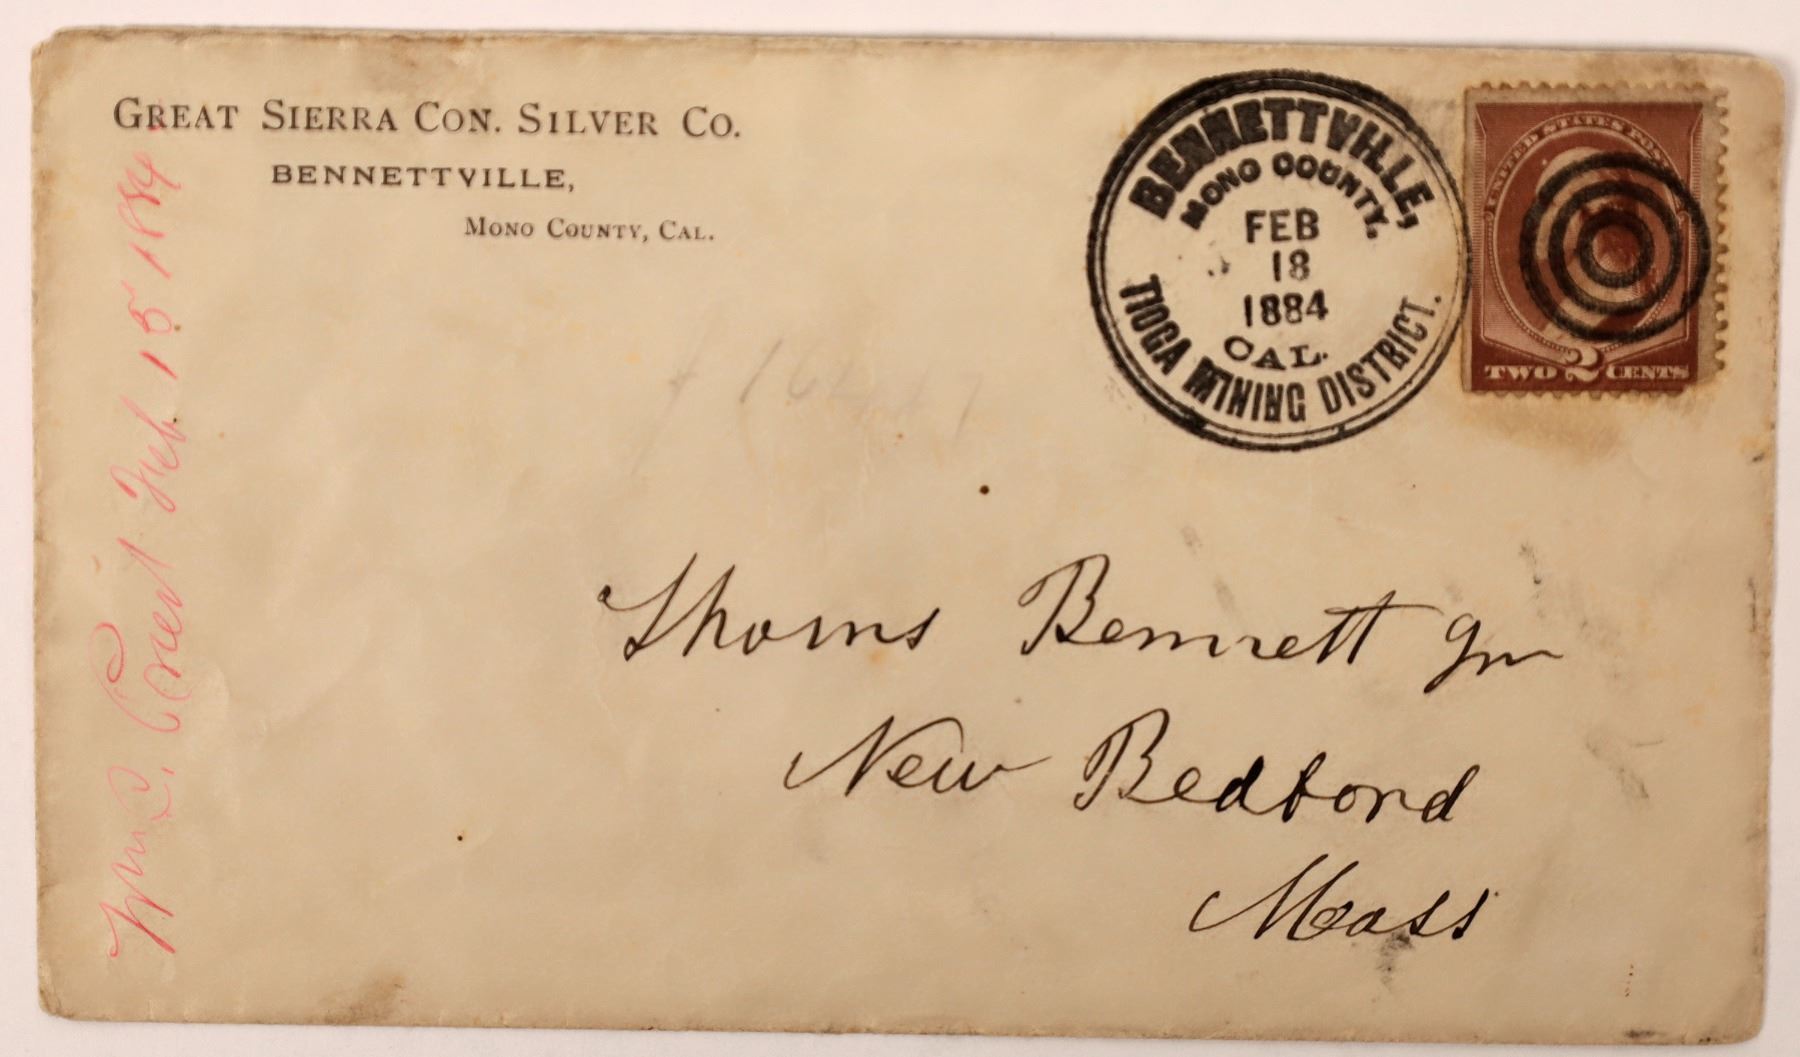 GREAT SIERRA CON. SILVER CO.
BENNETTVILLE,
MONO COUNTY, CAL.
BENNETTVILLE,
MONO COUNTY.
FEB
18
1884
CAL.
TIOGA MINING DISTRICT.
UNITED STATES POST
TWO 2 CENTS
Thoms Bennett Jnr
New Bedford
Mass
Wm C. Feb 15 1884